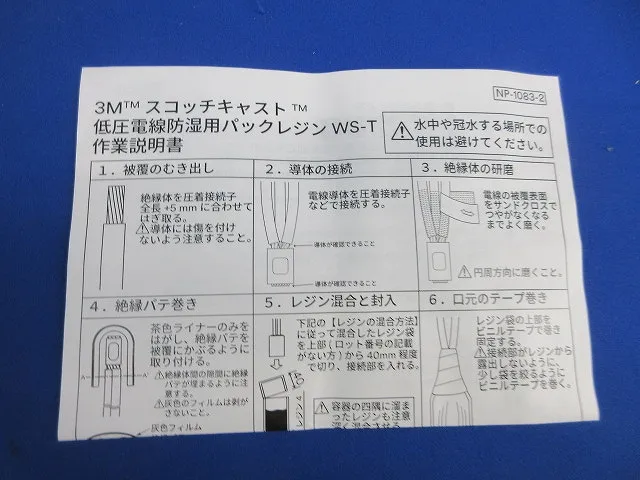 NP-1083-2
3M™ スコッチキャスト™
低圧電線防湿用パックレジン WS-T
作業説明書
⚠水中や冠水する場所での
使用は避けてください。
1．被覆のむき出し
絶縁体を圧着接続子
全長+5mmに合わせて
はぎ取る。
⚠導体には傷を付け
ないよう注意すること。
2．導体の接続
電線導体を圧着接続子
などで接続する。
導体が確認できること
導体が確認できること
3．絶縁体の研磨
電線の被覆表面
をサンドクロスで
つやがなくなる
までよく磨く。
⚠円周方向に磨くこと。
4．絶縁パテ巻き
茶色ライナーのみを
はがし、絶縁パテを
被覆にかぶるように
取り付ける。
⚠絶縁体間の隙間に絶縁
パテが埋まるように注
意すること。
⚠灰色のフィルムは剥が
さないこと。
灰色フィルム
5．レジン混合と封入
下記の【レジンの混合方法】
に従って混合したレジン袋
を上部(ロット番号の記載
がない方)から40mm程度
で切り、接続部を入れる。
レジン4
⚠容器の四隅に溜ま
ったレジンも注意
深く混合させる
6．口元のテープ巻き
レジン袋の上部を
ビニルテープで巻き
固定する。
⚠接続部がレジンから
露出しないように、
少し袋を絞るように
ビニルテープを巻く。